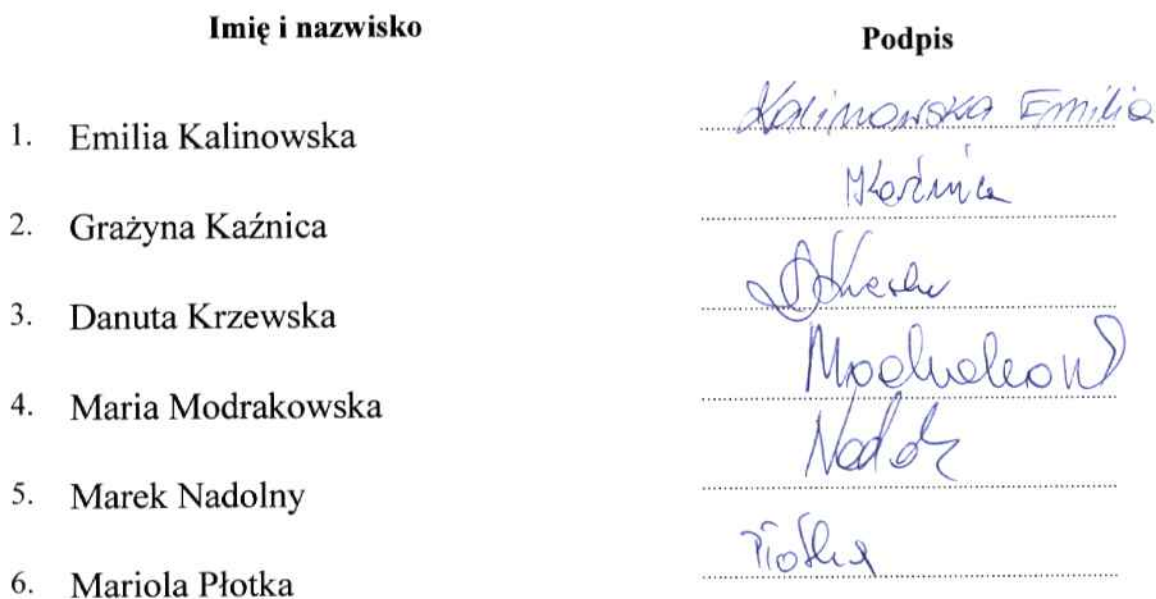 Imię i nazwisko Podpis
1. Emilia Kalinowska Kalinowska Emilia
2. Grażyna Kaźnica
3. Danuta Krzewska
4. Maria Modrakowska
5. Marek Nadolny
6. Mariola Płotka